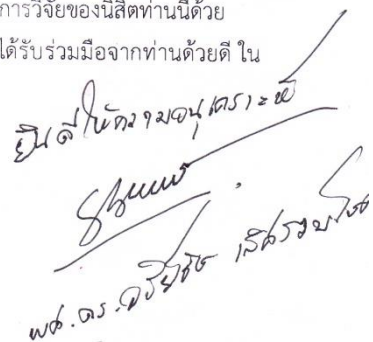 การวิจัยของนิสิตท่านนี้ด้วย
ได้รับร่วมมือจากท่านด้วยดี ใน
ยินดีให้ความอนุเคราะห์
ผศ.ดร.